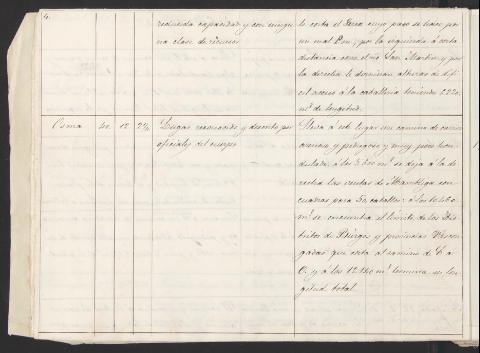 4.
reducida capacidad y con ningu
na clase de recursos
lo corta el Jerea cuyo paso se hace por
un mal P.on; por la izquierda á corta
distancia corre el rio San Martin, y por
la derecha le dominan alturas de dif
icil acceso á la caballeria teniendo 1220
m.s de longitud.
Osma 40. 12 2¾
Lugar reconocido y descrito por
oficiales del cuerpo
Lleva á este lugar un camino de carros
arenoso y pedregoso y muy poco
á los 3.500 m.s se deja á la de
recha las ventas de Mambliga con
cuadras para 50 caballos; á los 10.460
m.s se encuentra el límite de los Dis
tritos de Búrgos y provincias Vascon
gadas que corta al camino de E. a
O. y á los 12.140 m.s termina su lon
gitud total.